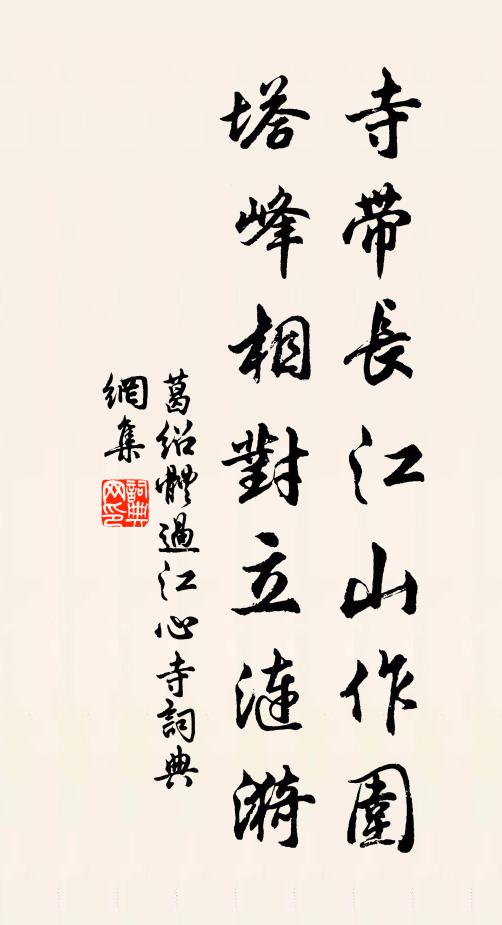 寺帶長江山作圍
塔峰相對立漣漪
葛紹體過江心寺詞典
網集
詞典
网印